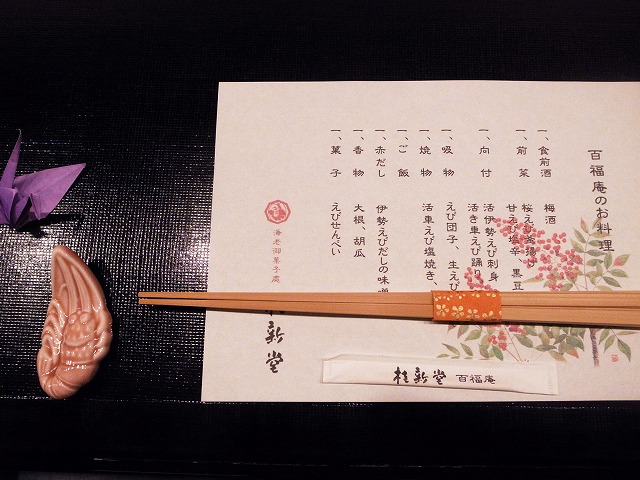 百福庵のお料理
一、食前酒 梅酒
一、前菜 桜えび釜揚げ
甘えび塩辛、黒豆
一、向付 活伊勢えび刺身
活き車えび踊り
一、吸物 えび団子、生えび
一、焼物 活車えび塩焼き、
一、ご飯
一、赤だし 伊勢えびだしの味噌
一、香物 大根、胡瓜
一、菓子 えびせんべい
海老御菓子處
桂新堂
桂新堂 百福庵